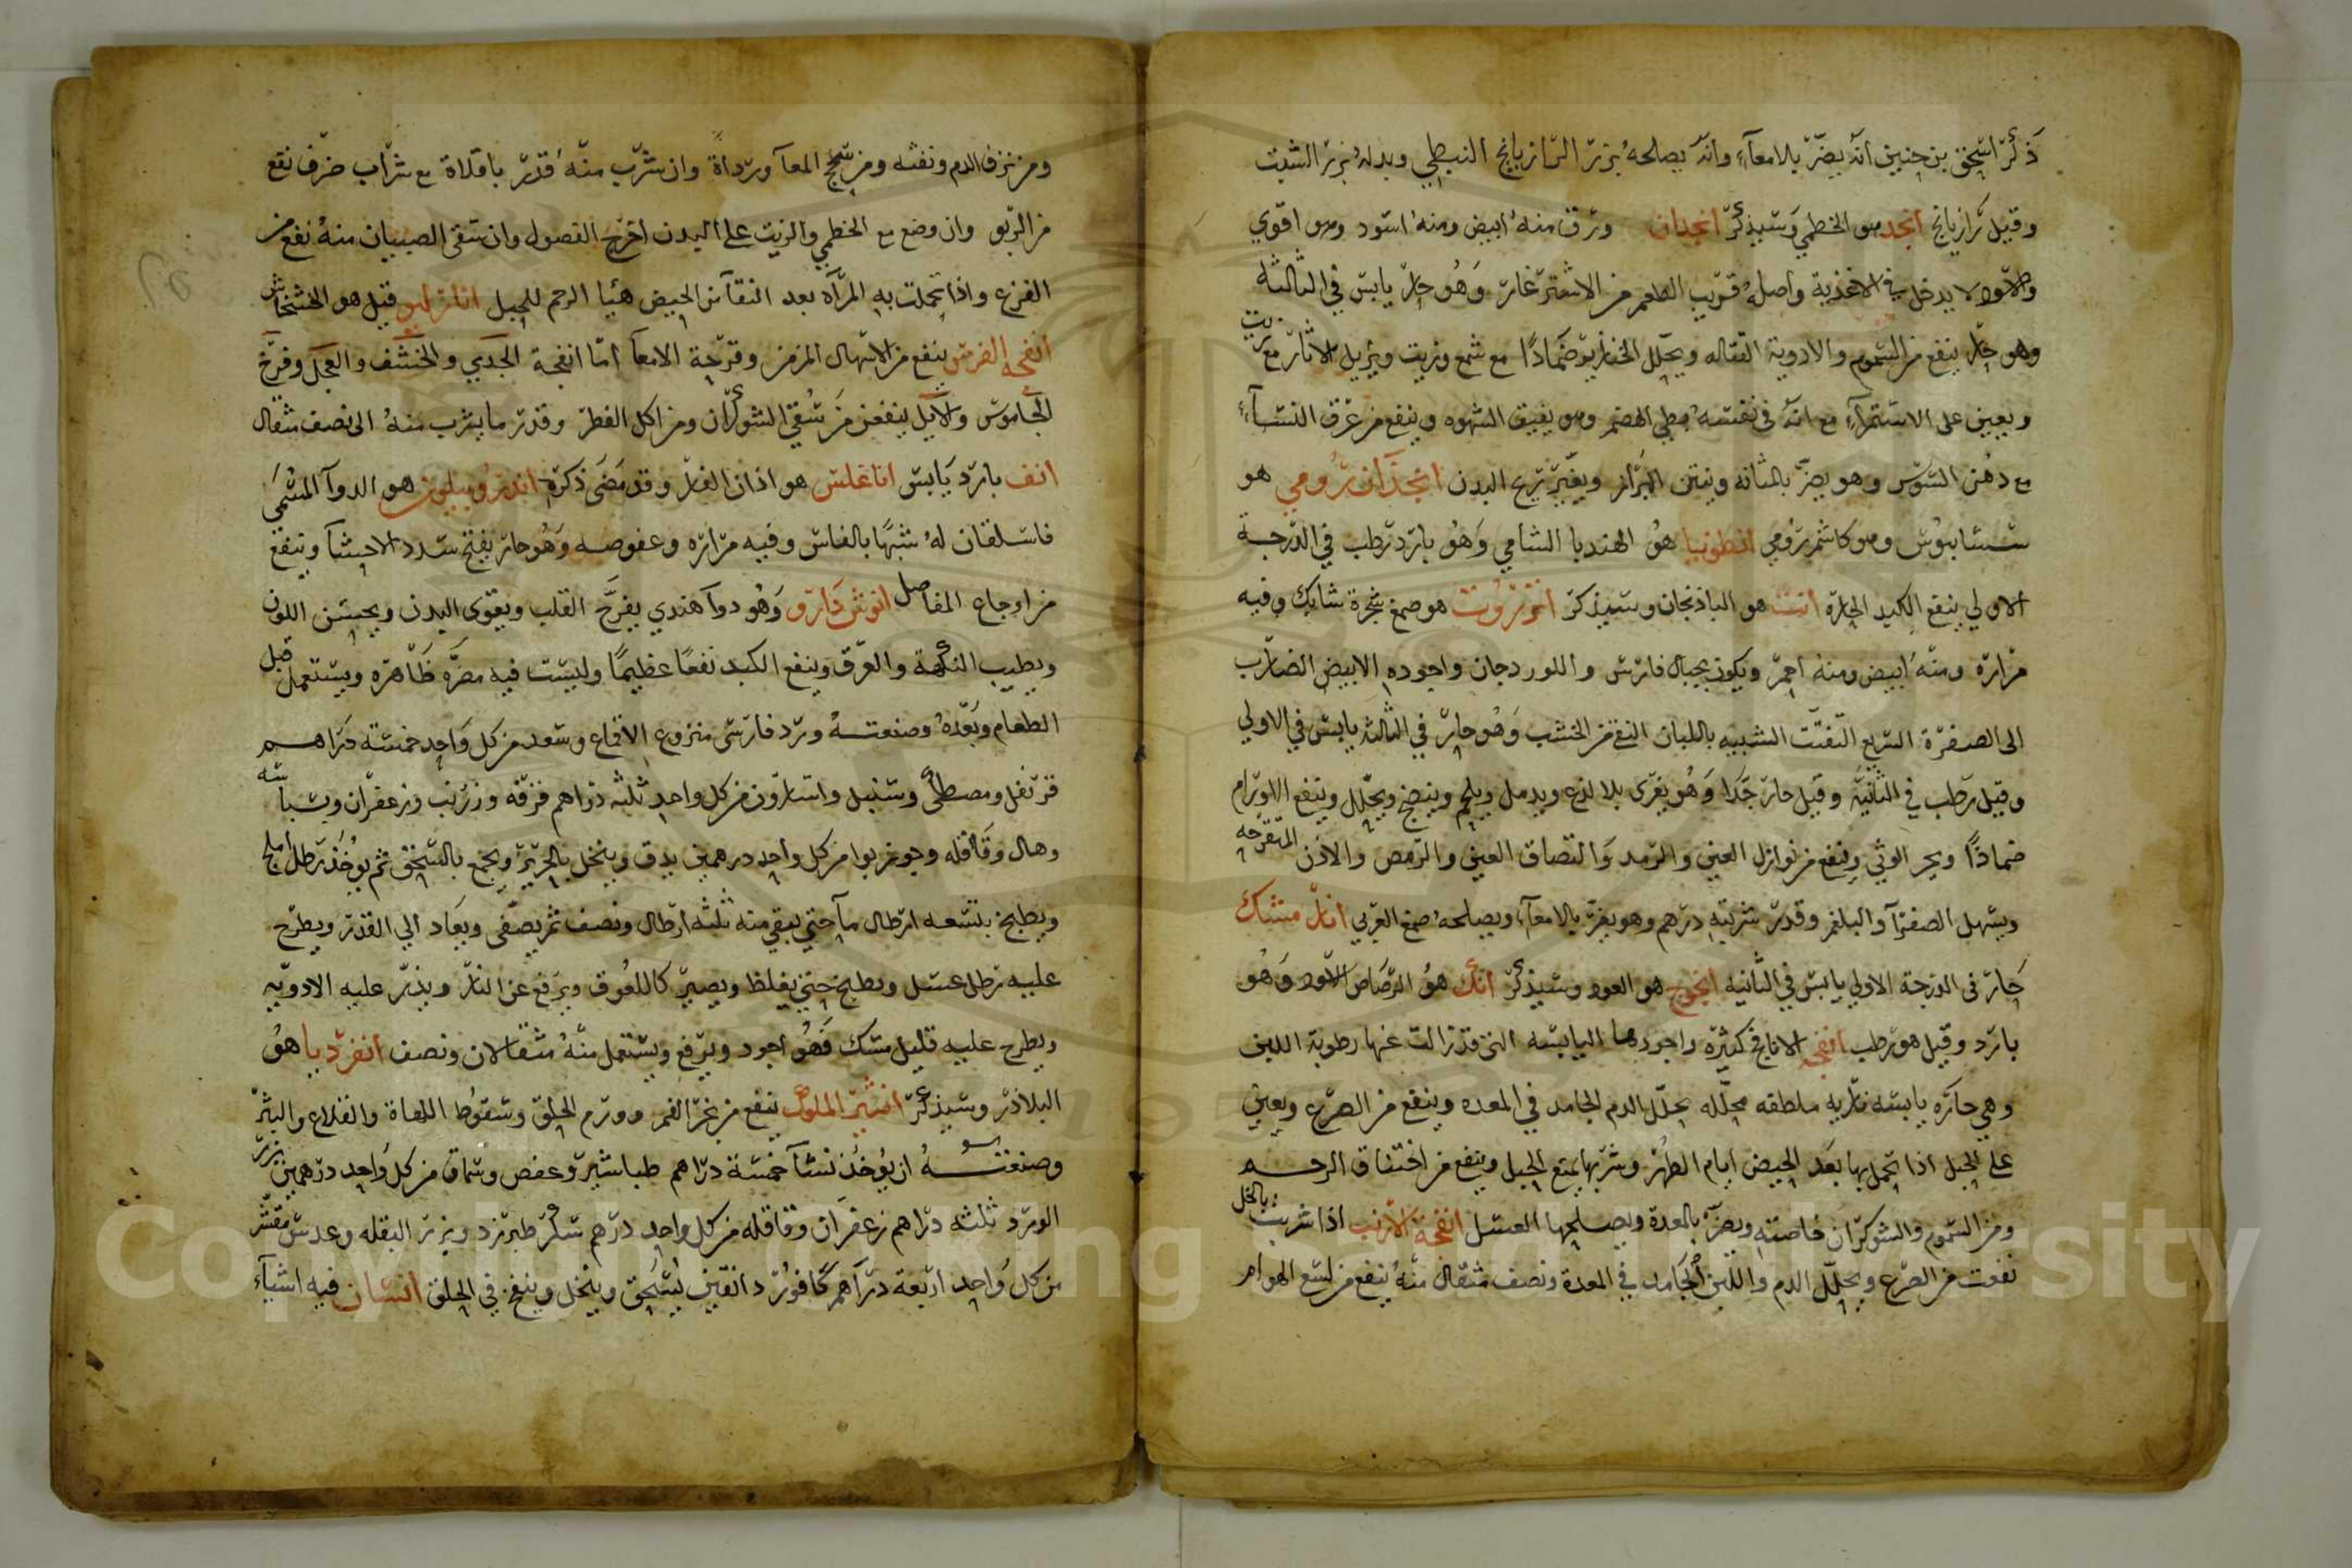 ذكر اسحق بن حنين انه يضر بالامعاء وانه يصلحه بزر الرازيانج النبطي وبدله بزر الشبت
وقيل رازيانج انجد هو الخطمي وسيذكر انجدان ورق منه ابيض ومنه اسود وهو اقوي
والاسود لا يدخل في الاغذية واصله قريب الطعم من الاشترغاز وهو حار يابس في الثالثة
وهو حار ينفع من السموم والادوية القتاله ويحلل الخنازير ضمادًا مع شمع وزيت ويزيل الاثار مع زيت
ويعين على الاستمراء مع انه في نفسه بطي الهضم وهو يفيق الشهوه وينفع من عرق النساء
مع دهن السوس وهو يضر بالمثانه وينتن البراز ويغير ريح البدن انجذان رومي هو
سساليوس وهو كاشم رومي انطونيا هو الهندبا الشامي وهو بارد رطب في الدرجة
الاولي ينفع الكبد الحارة انب هو الباذنجان وسيذكر انزروت هو صمغ شجرة شايك وفيه
مرارة ومنه ابيض ومنه احمر ويكون بجبال فارس واللوردجان واجوده الابيض الضارب
الى الصفرة السريع التفتت الشبيه باللبان النقي من الخشب وهو حار في الثالثة يابس في الاولي
وقيل رطب في الثانية وقيل حار جدا وهو يغرى بلا لذع ويدمل ويلحم وينضج ويحلل وينفع الاورام
ضمادًا ويجر الوثي وينفع من نوازل العين والرمد والتصاق العين والرمص والاذن المتقرحه
ويسهل الصفرا والبلغم وقدر شربته درهم وهو يضر بالامعاء ويصلحه صمغ العربي انار مشك
حار في الدرجة الاولي يابس في الثانية انجوج هو العود وسيذكر انك هو الرصاص الاسود وهو
بارد وقيل هو رطب انفحه الانافح كثيرة واجودها اليابسه التي قد زالت عنها رطوبة اللبن
وهي حاره يابسه نارية ملطفه محلله يحلل الدم الجامد في المعده وينفع من الصرع ويعين
على الحبل اذا تحمل بها بعد الحيض ايام الطهر وشربها يمنع الحبل وينفع من اختناق الرحم
ومن السموم والشوكران خاصته ويضر بالمعدة ويصلحها العسل انفحة الارنب اذا شربت بالخل
نفعت من الصرع ويحلل الدم واللبن الجامد في المعدة ونصف مثقال منه ينفع من لسع الهوام
ومن نزف الدم ونفثه ومن سحج المعا ورداة وان شرب منه قدر باقلاة مع شراب صرف نفع
من الربو وان وضع مع الخطمي والزيت على البدن اخرج الفصول وان سقى الصبيان منه نفع من
الفزع واذا تحملت به المراه بعد النقا من الحيض هيا الرحم للحبل قيل هو الخشخاش
انفحه الفرس ينفع من الاسهال المزمن وقرحة الامعا اما انفحة الجدي والخشف والعجل وفرخ
الجاموس والايل ينفعن من سقي الشوكران ومن اكل الفطر وقدر ما يشرب منه الى نصف مثقال
انف بارد يابس اناغلس هو اذان الفار وقد مضى ذكره هو الدوا المسمى
فاسلقان له شبها بالفاس وفيه مراره وعفوصه وهو حار يفتح سدد الاحشا وينفع
من اوجاع المفاصل انوش دارو وهو دوا هندي يفرح القلب ويقوى البدن ويحسن اللون
ويطيب النكهة والعرق وينفع الكبد نفعًا عظيمًا وليست فيه مضره ظاهره ويستعمل قبل
الطعام وبعده وصنعته ورد فارسي منزوع الاقماع وسعد من كل واحد خمسة دراهم
قرنفل ومصطكى وسنبل واسارون من كل واحد ثلثه دراهم قرفه وزرنب وزعفران وبسباسه
وهال وقاقله وجوز بوا من كل واحد درهمين يدق وينخل بالحرير ويجمع بالسحق ثم يوخذ رطل املج
ويطبخ بتسعه ارطال ما حتى يبقي منه ثلثه ارطال ونصف ثم يصفى ويعاد الي القدر ويطرح
عليه رطل عسل ويطبخ حتى يغلظ ويصير كاللعوق ويرفع عن النار ويذر عليه الادويه
ويطرح عليه قليل مسك فهو اجود ويرفع ويستعمل منه مثقالان ونصف انفرديا هو
البلاذر وسيذكر ينفع من بخر الفم وورم الحلق وسقوط اللهاة والقلاع والبثر
وصنعته ان يوخذ نشا خمسة دراهم طباشير وعفص وسماق من كل واحد درهمين بزر
الورد ثلثه دراهم زعفران وقاقله من كل واحد درهم سكر طبرزد وبزر البقله وعدس مقشر
من كل واحد اربعة دراهم كافور دانقين يسحق وينخل وينفخ في الحلق انسان فيه اشياء
Copyright © King Saud University